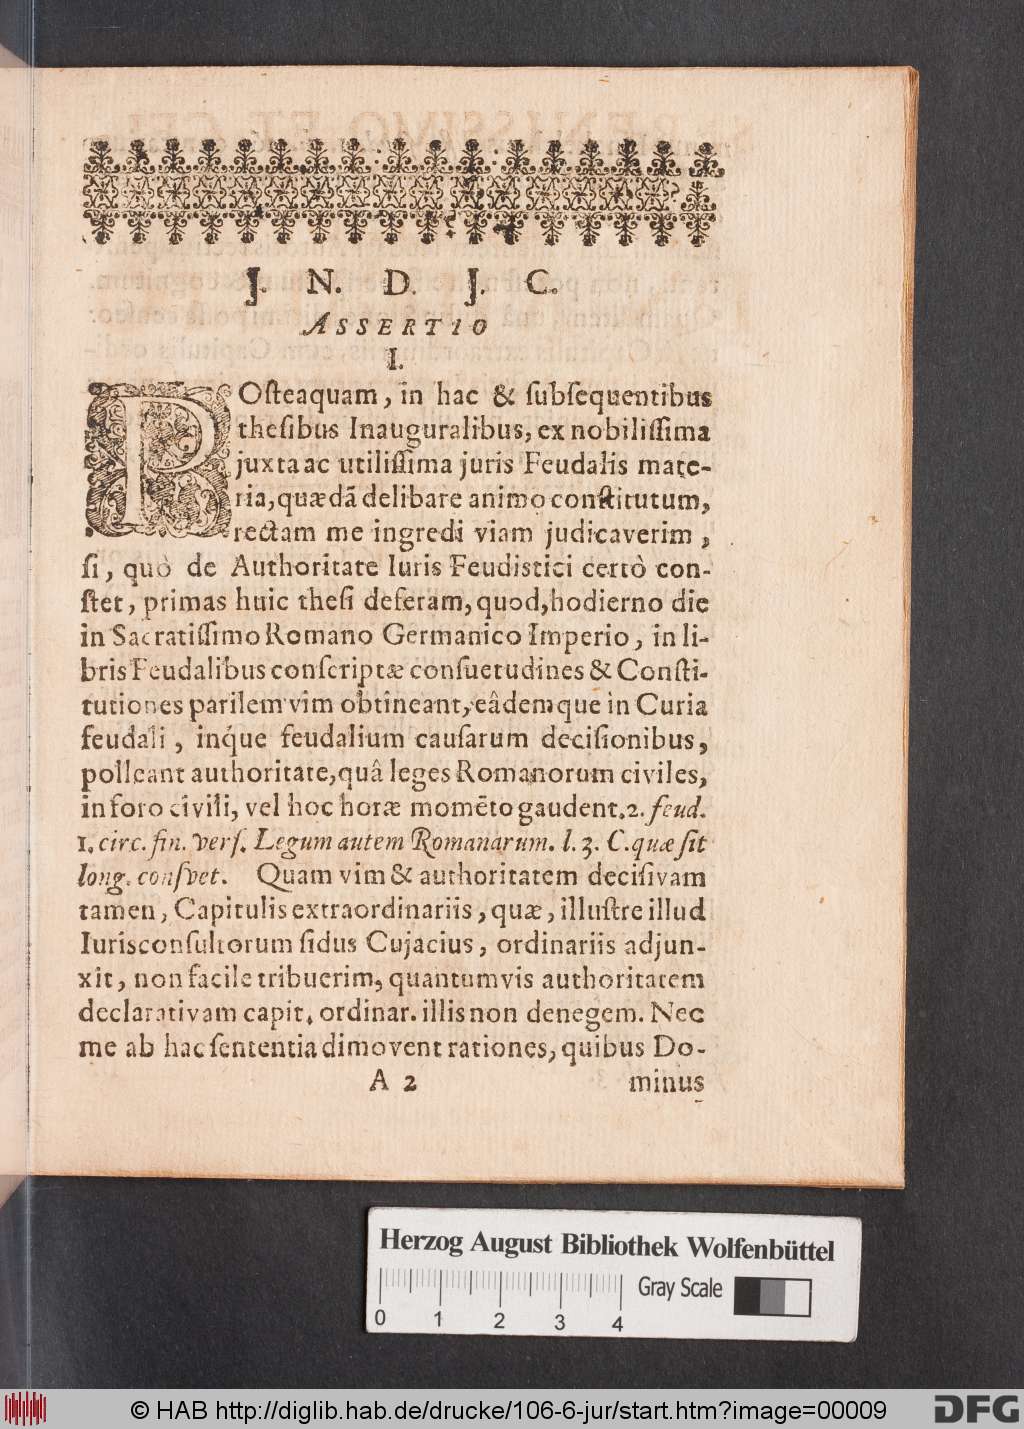 J. N. D. J. C.
ASSERTIO
I.
POſteaquam, in hac & ſubſequentibus
theſibus Inauguralibus, ex nobiliſſima
juxta ac utiliſſima juris Feudalis mate-
ria, quædã delibare animo conſtitutum,
rectam me ingredi viam judicaverim,
ſi, quò de Authoritate Iuris Feudistici certò con-
ſtet, primas huic theſi deferam, quod, hodierno die
in Sacratiſſimo Romano Germanico Imperio, in li-
bris Feudalibus conſcriptæ conſuetudines & Conſti-
tutiones parilem vim obtineant, eâdemque in Curia
feudali, inq́ue feudalium cauſarum deciſionibus,
polleant authoritate, quâ leges Romanorum civiles,
in foro civili, vel hoc horæ momẽto gaudent. 2. feud.
1. circ. fin. verſ. Legum autem Romanarum. l. 3. C. quæ ſit
long. conſvet. Quam vim & authoritatem deciſivam
tamen, Capitulis extraordinariis, quæ, illuſtre illud
Iurisconſultorum ſidus Cujacius, ordinariis adjun-
xit, non facile tribuerim, quantumvis authoritatem
declarativam capit. ordinar. illis non denegem. Nec
me ab hac ſententia dimovent rationes, quibus Do-
A 2 minus
Herzog August Bibliothek Wolfenbüttel
Gray Scale
0 1 2 3 4
© HAB http://diglib.hab.de/drucke/106-6-jur/start.htm?image=00009
DFG